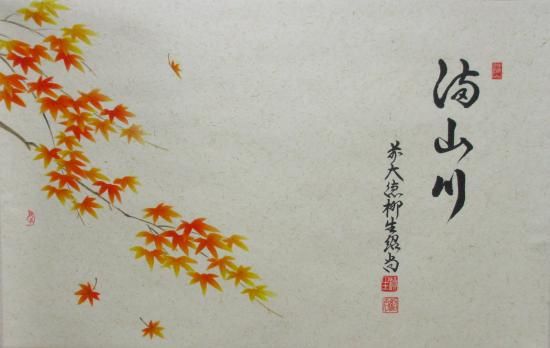 満山川
前大徳柳生紹尚